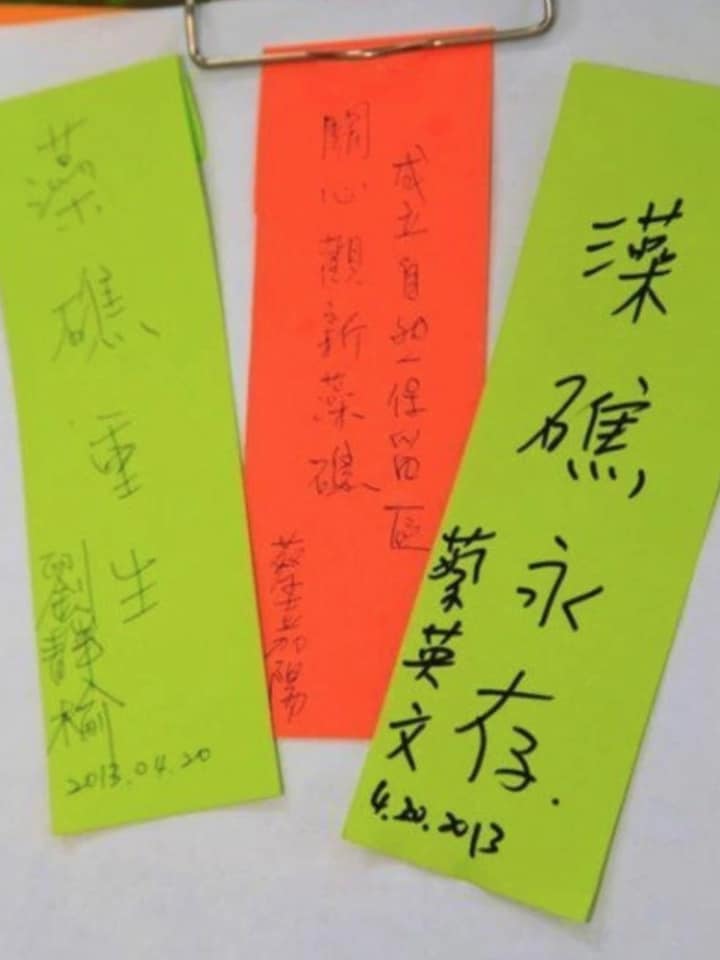 藻礁重生
劉靜榆
2013.04.20
成立自然保留区
關心觀新藻礁
蔡嘉陽
藻礁永存.
蔡英文
4.20.2013